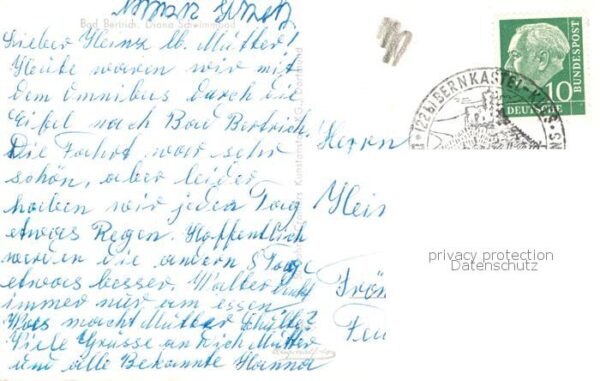 Bad Bertrich, Diana Schwimmbad
Lieber Heinz lb. Mutter!
Heute waren wir mit
dem Omnibus durch die
Eifel nach Bad Bertrich,
Die Fahrt war sehr
schön, aber leider
haben wir jeden Tag
etwas Regen. Hoffentlich
werden die andern 5 Tage
etwas besser. Walter
immer nur am essen
Was macht Mutter
Viele Grüsse an dich Mutter
und alle Bekannte Hanna
Herrn
Hein
Frön
BERNKASTEL-KUES
(22b)
10
DEUTSCHE
BUNDESPOST
privacy protection
Datenschutz